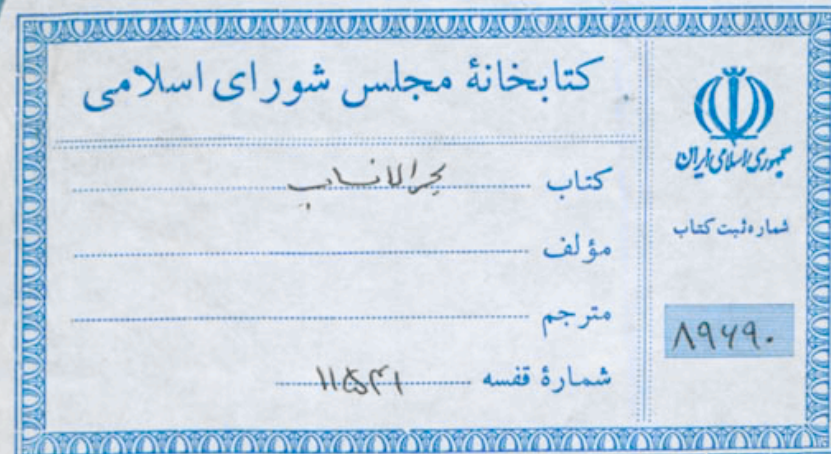 کتابخانهٔ مجلس شورای اسلامی
کتاب بحر الانساب
مؤلف
مترجم
شمارهٔ قفسه ۱۱۵۴۱
جمهوری اسلامی ایران
شماره ثبت کتاب
۸۹۶۹۰